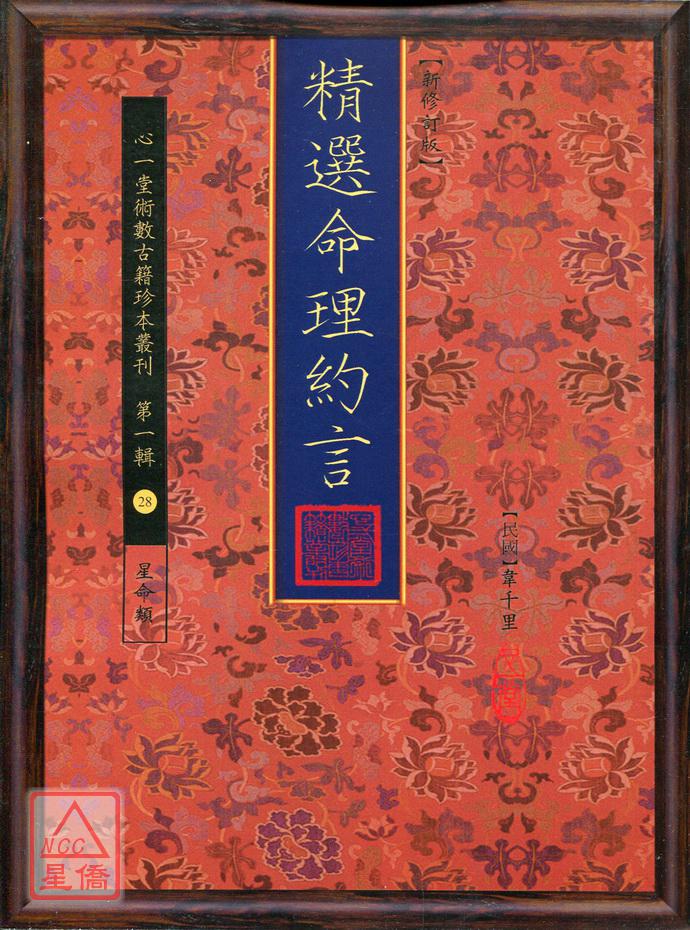 【新修訂版】
精選命理約言
【民國】韋千里
心一堂術數古籍珍本叢刊 第一輯
28
星命類
NCC
星僑